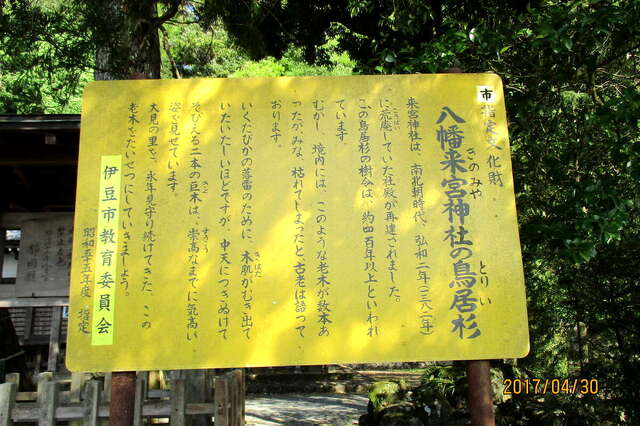 市指定文化財
八幡来宮神社の鳥居杉
きのみや
とりい
来宮神社は、南北朝時代、弘和二年(一三八二年)
に荒廃していた社殿が再建されました。
こうはい
この鳥居杉の樹令は、約四百年以上といわれ
ています
むかし、境内には、このような老木が数本あ
ったがみな、枯れてしまったと古老は語って
おります。
いくたびかの落雷のために、木肌がむき出て
きはだ
いたいたしいほどですが、中天につきぬけて
そびえる二本の巨木は、崇高なまでに気高い
きょ
すうこう
姿を見せています。
大見の里を、永年見守り続けてきた、この
老木をたいせつにしていきましょう。
伊豆市教育委員会
昭和五十五年度 指定
2017/04/30